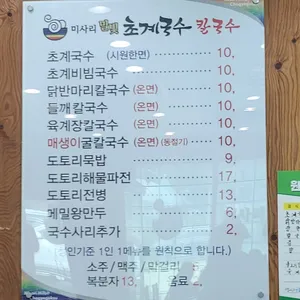 미사리 밀빛 초계국수 칼국수
초계국수 (시원한면) 10,
초계비빔국수 10,
닭반마리칼국수(온면) 10,
들깨칼국수 (온면) 10,
육계장칼국수 (온면) 10,
매생이굴칼국수 (온면)(동절기) 10,
도토리묵밥 9,
도토리해물파전 17,
도토리전병 13,
메밀왕만두 6,
국수사리추가 2,
인기준 1인 1메뉴를 원칙으로 합니다.
소주 / 맥주 / 막걸리
복분자 13, 음료 2,